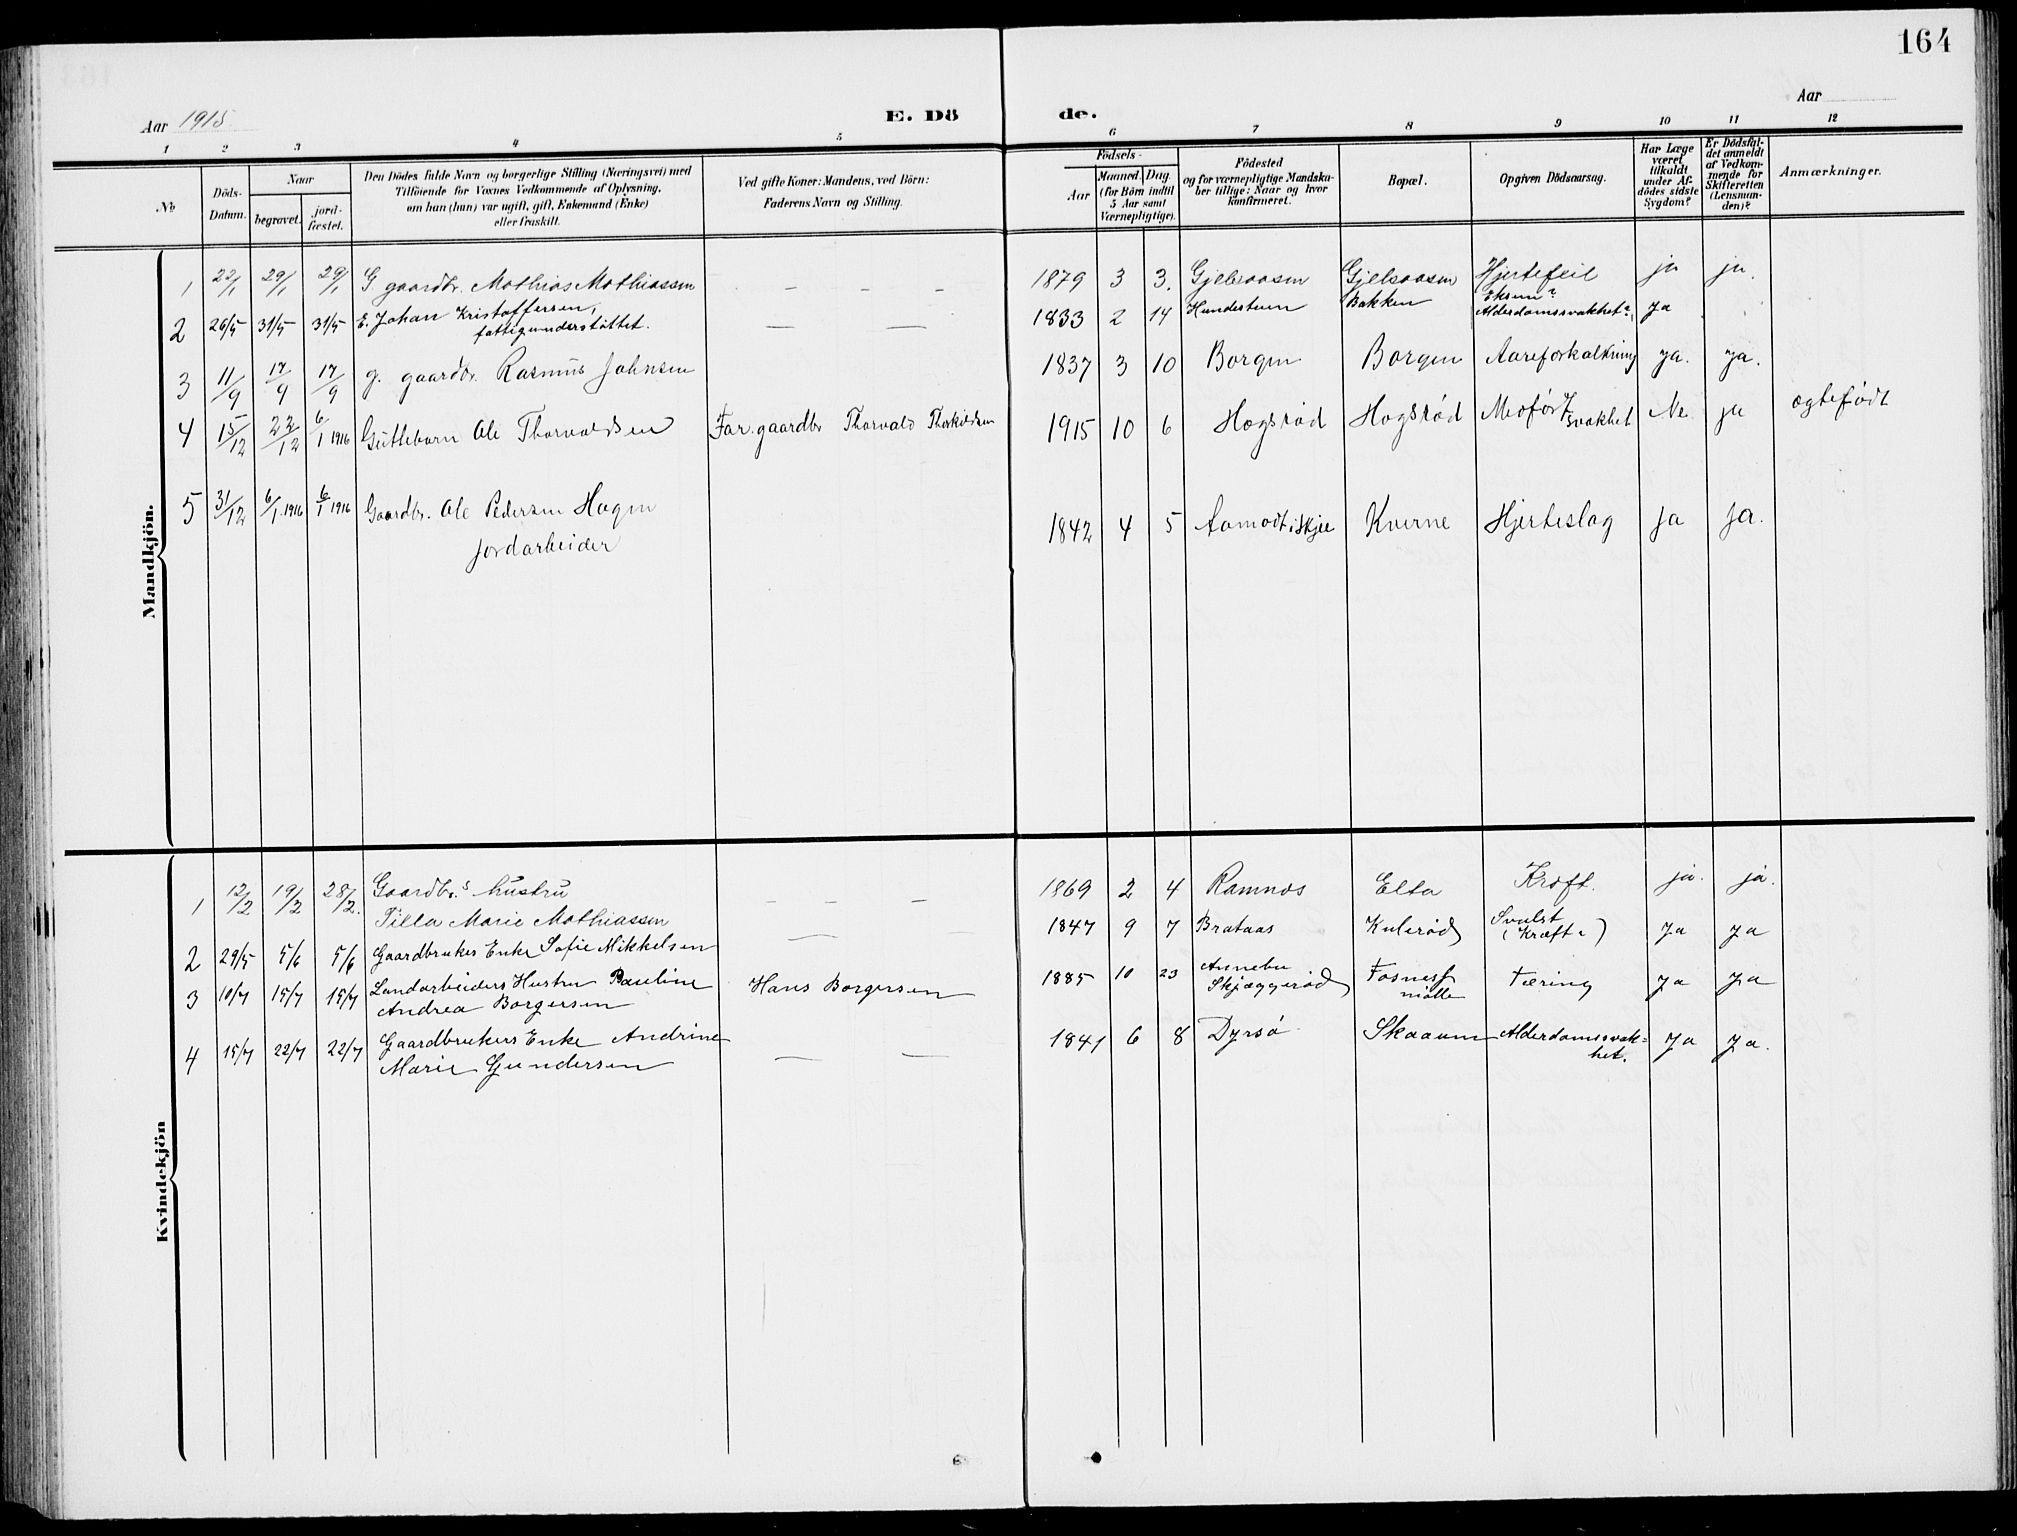 164
Aar 1915
E. Dö de.
Aar
1 2 3 4 5 6 7 8 9 10 11 12
No
Döds-Datum.
Naar
begravet.
jord-fæstet.
Den Dödes fulde Navn og borgerlige Stilling (Næringsvei) med
Tilföiende for Voxnes Vedkommende af Oplysning,
om han (hun) var ugift, gift, Enkemand (Enke)
eller fraskilt.
Ved gifte Koner: Mandens, ved Börn:
Faderens Navn og Stilling.
Födsels-
Aar
Maaned. Dag.
(for Börn indtil
5 Aar samt
Værnepligtige).
Födested
og for værnepligtige Mandska-
ber tillige: Naar og hvor
konfirmeret.
Bopæl.
Opgiven Dödsaarsag.
Har Læge
været
tilkaldt
under Af-
dödes sidste
Sygdom?
Er Dödsfal-
det anmeldt
af Vedkom-
mende for
Skifteretten
(Lensman-
den)?
Anmærkninger.
Mandkjön.
1 22/1 29/1 29/1 G gaardbr. Mathias Mathiassen – – – – 1879 3 3. Gjelsaasen Gjelsaasen Hjertefeil ja ja.
2 26/5 31/5 31/5 E. Johan Kristoffersen, fattigunderstøttet. — — 1833 2 14 Hundsteen Bakken Eksem? Alderdomssvakhet? Ja
3 11/9 17/9 17/9 g. gaardbr. Rasmus Johnsen 1837 3 10 Borgen Borgen Aareforkalkning ja. ja.
4 15/12 22/12 6/1 1916 Guttebarn Ole Thorvaldsen Far. gaardbr Thorvald Thorkildsen 1915 10 6 Hogsrød Hogsrød Medført svakhet Ne ja ægtefødt
5 31/12 6/1 1916 6/1 1916 Gaardbr. Ole Pedersen Hagen
jordarbeider 1842 4 5 Aamodt i Skjee Kverne Hjerteslag ja ja.
Kvindekjön
1 12/2 19/2 28/2. Gaardbr.s hustru
Tilla Marie Mathiassen – – – – 1869 2 4 Ramnes Elta Kræft. ja. ja.
2 29/5 5/6 5/6 Gaardbrukers Enke Sofie Mikkelsen — — 1847 9 7 Brataas Kulerød Svulst (Kræft?) Ja ja
3 10/7 15/7 15/7 Landarbeiders Hustru Pauline
Andrea Borgersen Hans Borgersen 1885 10 23 Annebu Skjæggerød Fosnes mølle Tæring Ja Ja
4 15/7 22/7 22/7 Gaardbrukers Enke Andrine
Marie Gundersen — — 1841 6 8 Dyrsø Skaaum Alderdomssvak=
het. Ja Ja.